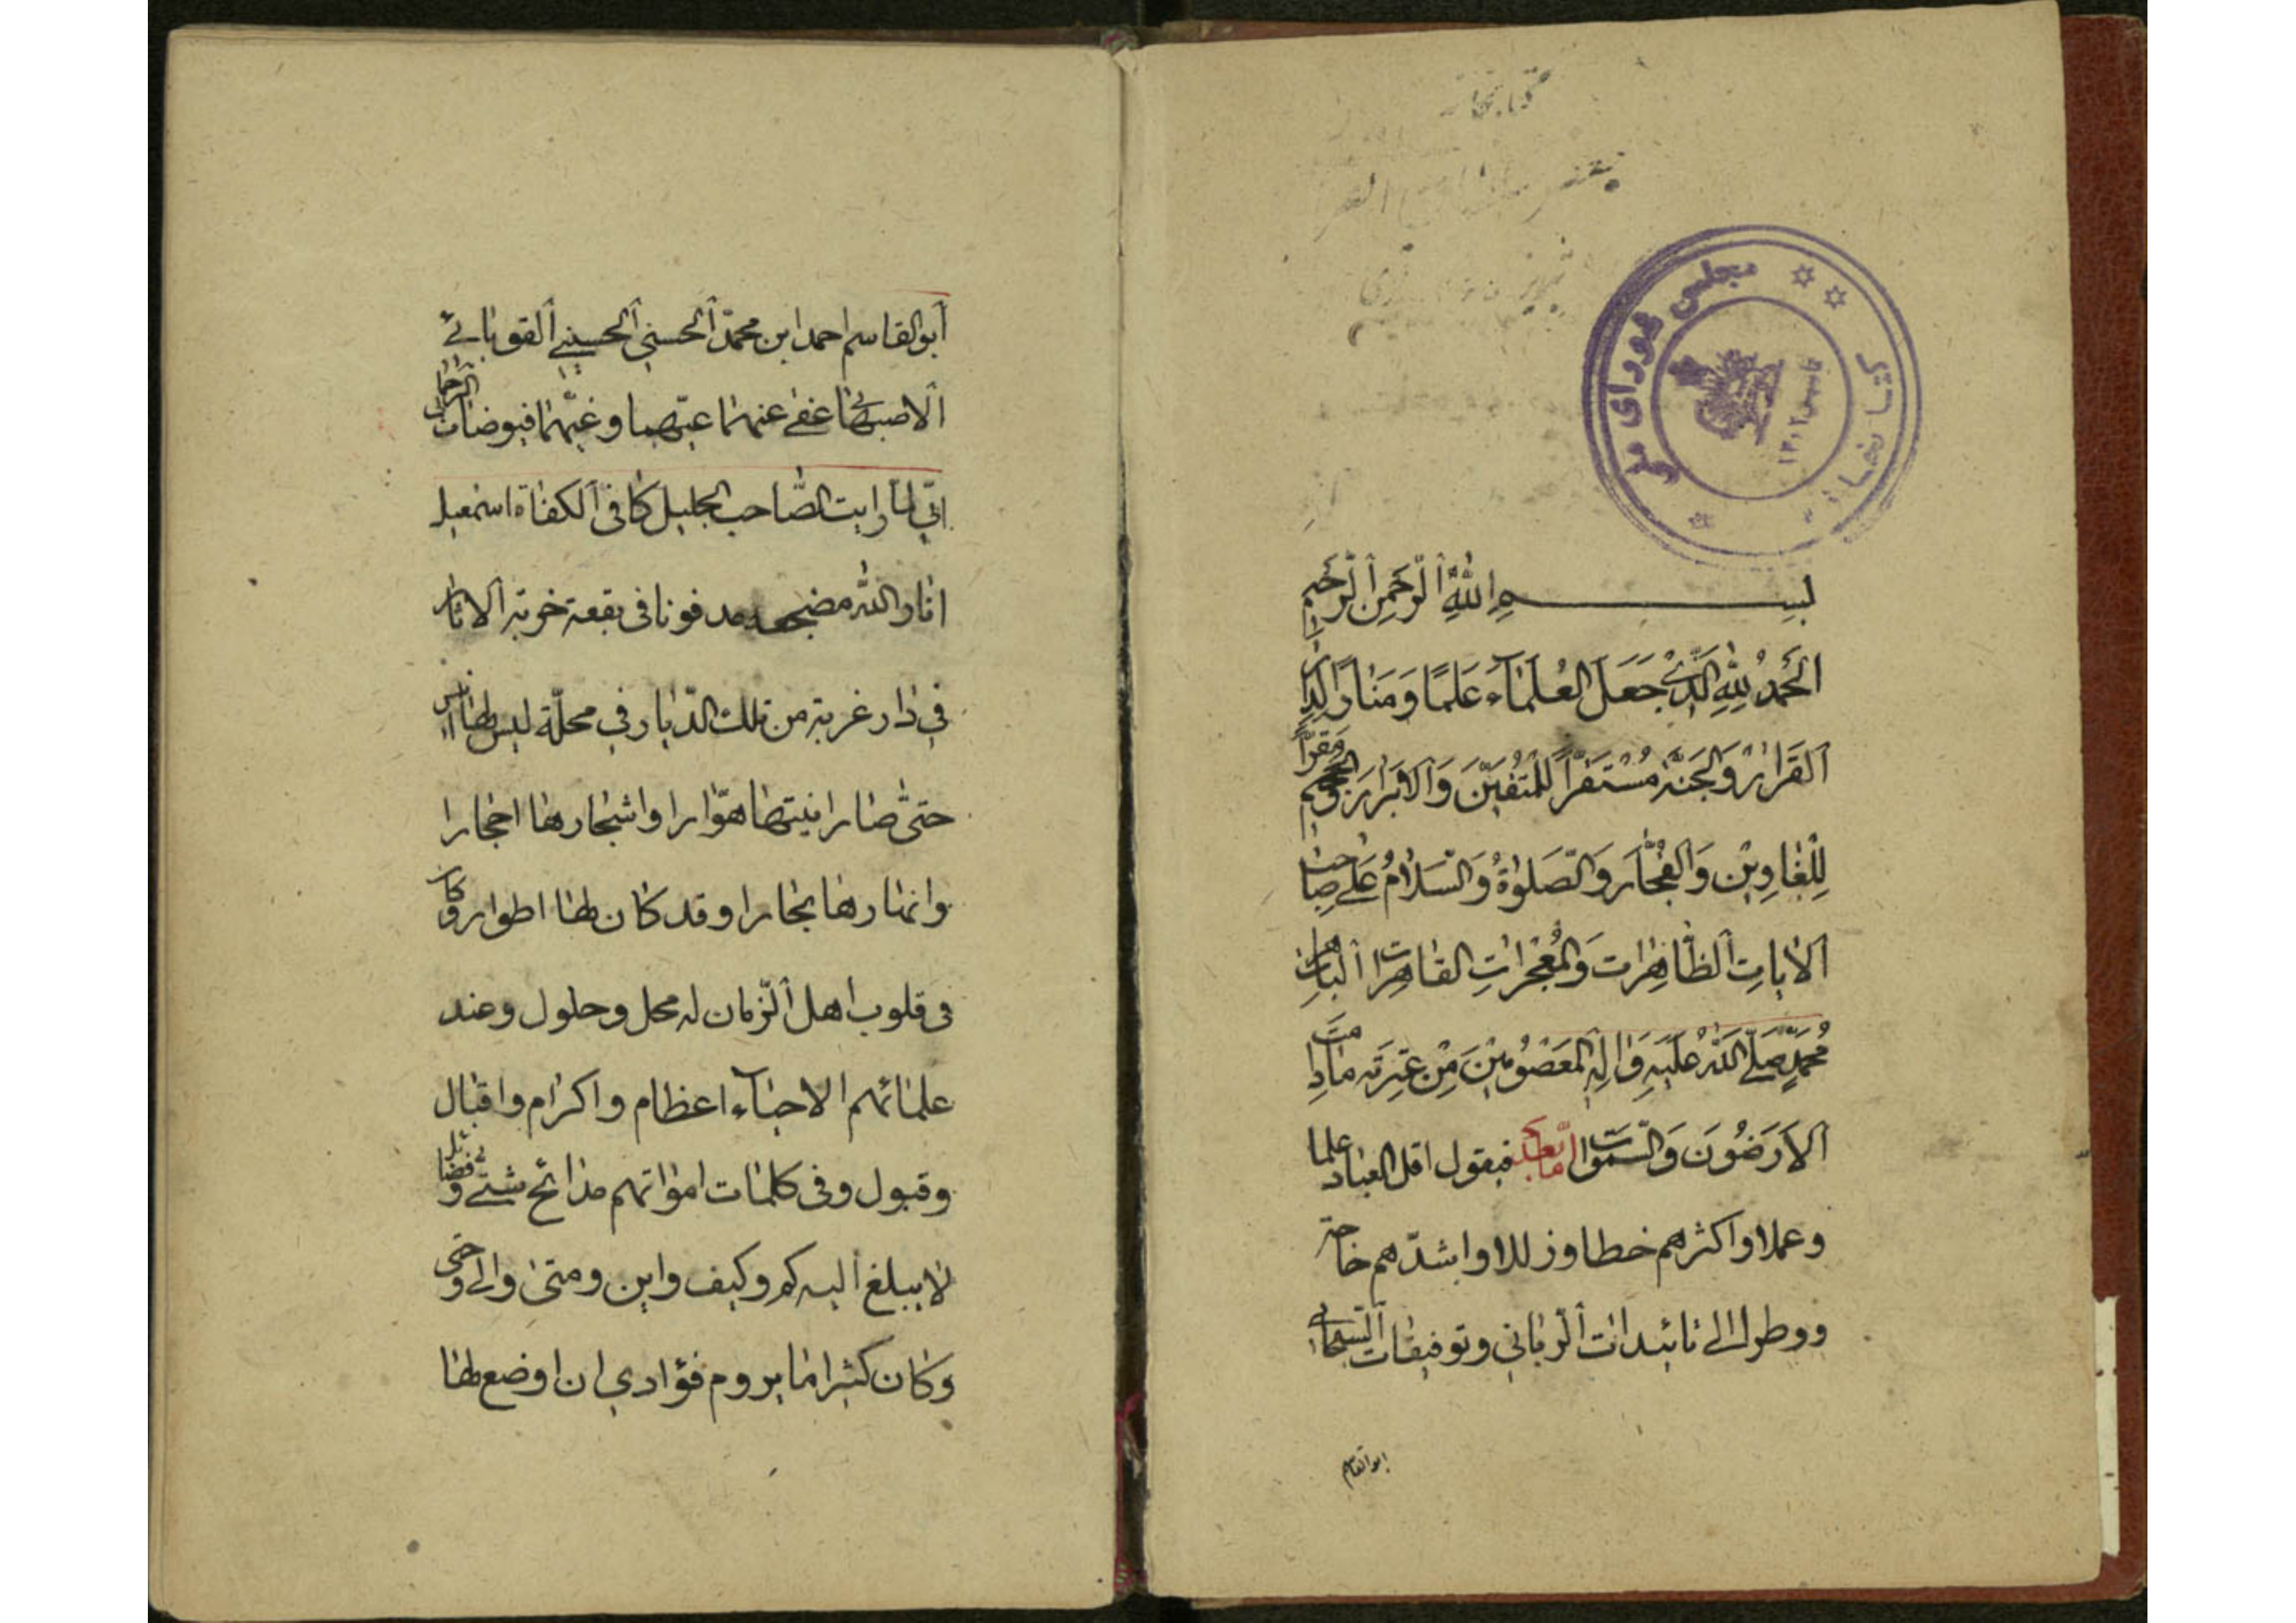 کتابخانه
مجلس شورای ملی
کتابخانه
تاسیس ۱۳۰۲
بسم الله الرحمن الرحیم
اَلحَمدُ لِلّٰهِ الَّذی جَعَلَ العُلَمٰآءَ عَلَمًا وَمَنٰارًا لِدٰارِ
القَرٰارِ وَالجَنَّةَ مُسْتَقَرًّا لِلْمُتَّقینَ وَالاَبْرٰارِ وَالجَحیمَ مَقَرًّا
لِلْغٰاوینَ وَالفُجّٰارِ وَالصَّلوٰةُ وَالسَّلٰامُ عَلیٰ صٰاحِبِ
الاٰیاتِ الظّٰاهِرٰات وَالمُعْجِزاتِ القٰاهِراتِ البٰاهِراتِ
مُحَمَّدٍ صَلَّی اللهُ عَلَیهِ وَاٰلِهِ المَعصُومینَ مِن عِترَتِه مٰادٰامَتِ
الاَرَضُونَ وَالسَّمٰوٰات اما بعد فیقول اقل العباد علما
وعملا واکثرهم خطا وزللا واشدّهم حاجة
ووطولا الی تائیدات الرّبانی وتوفیقات السّبحانی
ابوالقاسم
ابوالقاسم احمد ابن محمّد الحسنی الحسینی القوپائی
الاصبهانی عفی عنهما عیّهما وغیّهما فیوضات الرحمان
انّی لمّا رایت الصّاحب الجلیل کافی الکفاة اسمعیل
انار الله مضجعه مدفونا فی بقعة خربة الاثار
فی دار غریبة من تلک الدّیار وفی محلّة لیس لها اناس
حتّی صار ابنیتها هوّارا واشجارها احجارا
وانهارها بخارا وقد کان لها اطوار وکان
فی قلوب اهل الزّمان له محل وحلول وعند
علمائهم الاحیآء اعظام واکرام واقبال
وقبول وفی کلمات امواتهم مدائح شتّی وفضائل
لا یبلغ الیه کم وکیف واین ومتی والی وحتی
وکان کثیرا ما یروم فؤادی ان اوضع لها